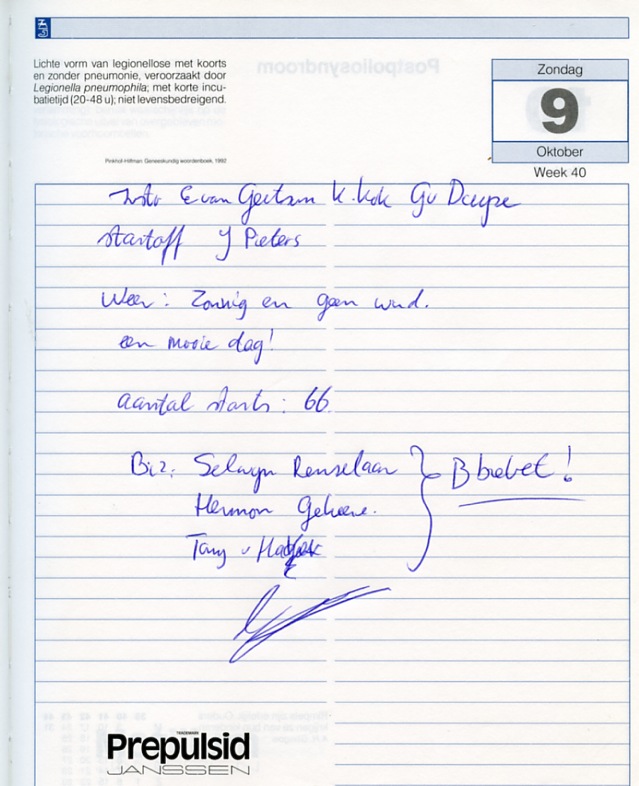 Lichte vorm van legionellose met koorts
en zonder pneumonie, veroorzaakt door
Legionella pneumophila; met korte incu-
batietijd (20-48 u); niet levensbedreigend.
Pinkhof-Hilfman. Geneeskundig woordenboek, 1992
Postpoliosyndroom
Zondag
9
Oktober
Week 40
E van K. Kok Gv
startoff J Pieters
Weer: Zonnig en geen wind.
een mooie dag!
aantal starts: 66
Biz: Selwyn Renselaar
B brevet!
Hermon
Tony v
TRADEMARK
Prepulsid
JANSSEN